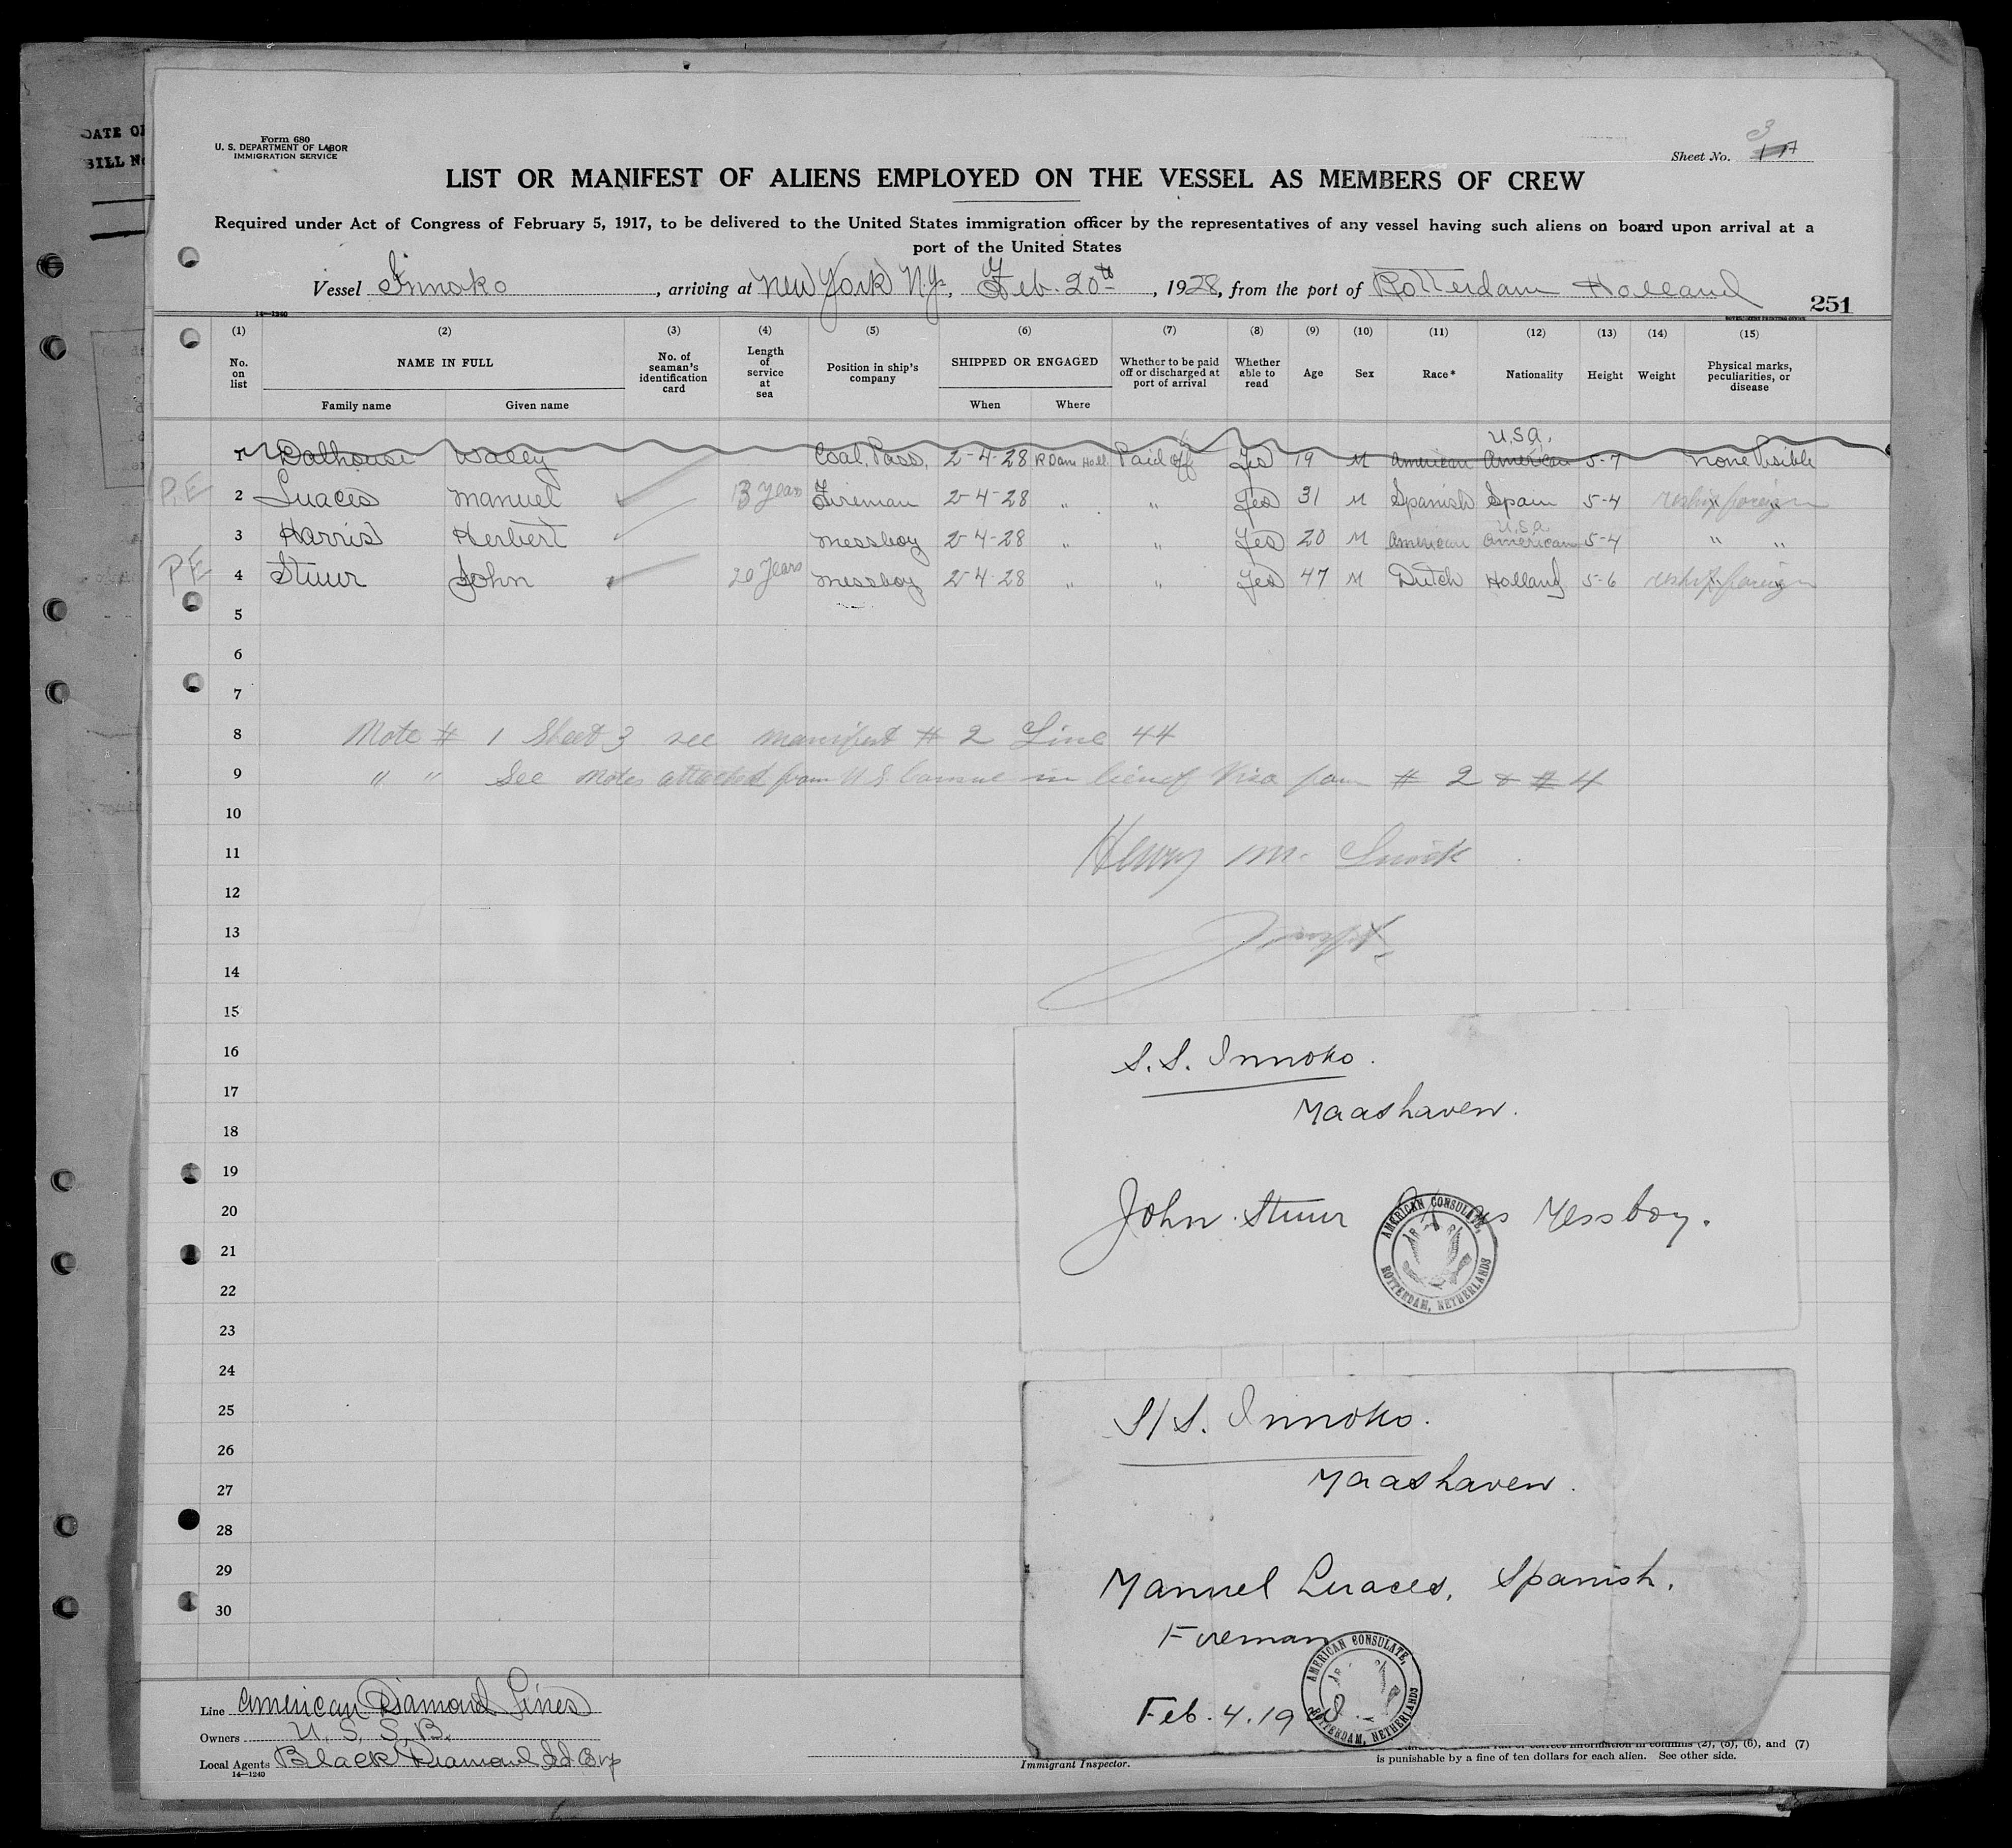 DATE OF
BILL No
Form 680
U. S. DEPARTMENT OF LABOR
IMMIGRATION SERVICE
Sheet No. 3
LIST OR MANIFEST OF ALIENS EMPLOYED ON THE VESSEL AS MEMBERS OF CREW
Required under Act of Congress of February 5, 1917, to be delivered to the United States immigration officer by the representatives of any vessel having such aliens on board upon arrival at a
port of the United States
Vessel Innoko, arriving at New York N.Y., Feb. 20th, 1928, from the port of Rotterdam Holland
251
14—1240
(1) (2) (3) (4) (5) (6) (7) (8) (9) (10) (11) (12) (13) (14) (15)
No. on list
NAME IN FULL
Family name Given name
No. of seaman's identification card
Length of service at sea
Position in ship's company
SHIPPED OR ENGAGED
When Where
Whether to be paid off or discharged at port of arrival
Whether able to read
Age Sex Race* Nationality Height Weight
Physical marks, peculiarities, or disease
U.S.A.
1 Dalhouse Wally Coal Pass. 2-4-28 RDam Holl Paid off Yes 19 M American American 5-7 None Visible
PE 2 Luaces Manuel 13 years Fireman 2-4-28 " " Yes 31 M Spanish Spain 5-4 reship foreign
U.S.A.
3 Harris Herbert Messboy 2-4-28 " " Yes 20 M American American 5-4 " "
PE 4 Stuur John 20 years Messboy 2-4-28 " " Yes 47 M Dutch Holland 5-6 reship foreign
5
6
7
8 Note # 1 Sheet 3 see manifest # 2 Line 44
9 " " See notes attached from U S Consul in lieu of Visa for # 2 & # 4
10
11 Henry M.
12
13
14
15
16
17
18
19
20
21
22
23
24
25
26
27
28
29
30
S.S. Innoko.
Maashaven.
John Stuur as Messboy.
AMERICAN CONSULATE,
ROTTERDAM, NETHERLANDS
S/S. Innoko.
Maashaven.
Manuel Luaces, Spanish.
Fireman
Feb. 4. 19
AMERICAN CONSULATE,
ROTTERDAM, NETHERLANDS
Line American Diamond Lines
Owners U. S. S. B.
Local Agents Black Diamond SS Corp
14—1240
Immigrant Inspector.
correct information in columns (2), (5), (6), and (7)
is punishable by a fine of ten dollars for each alien. See other side.